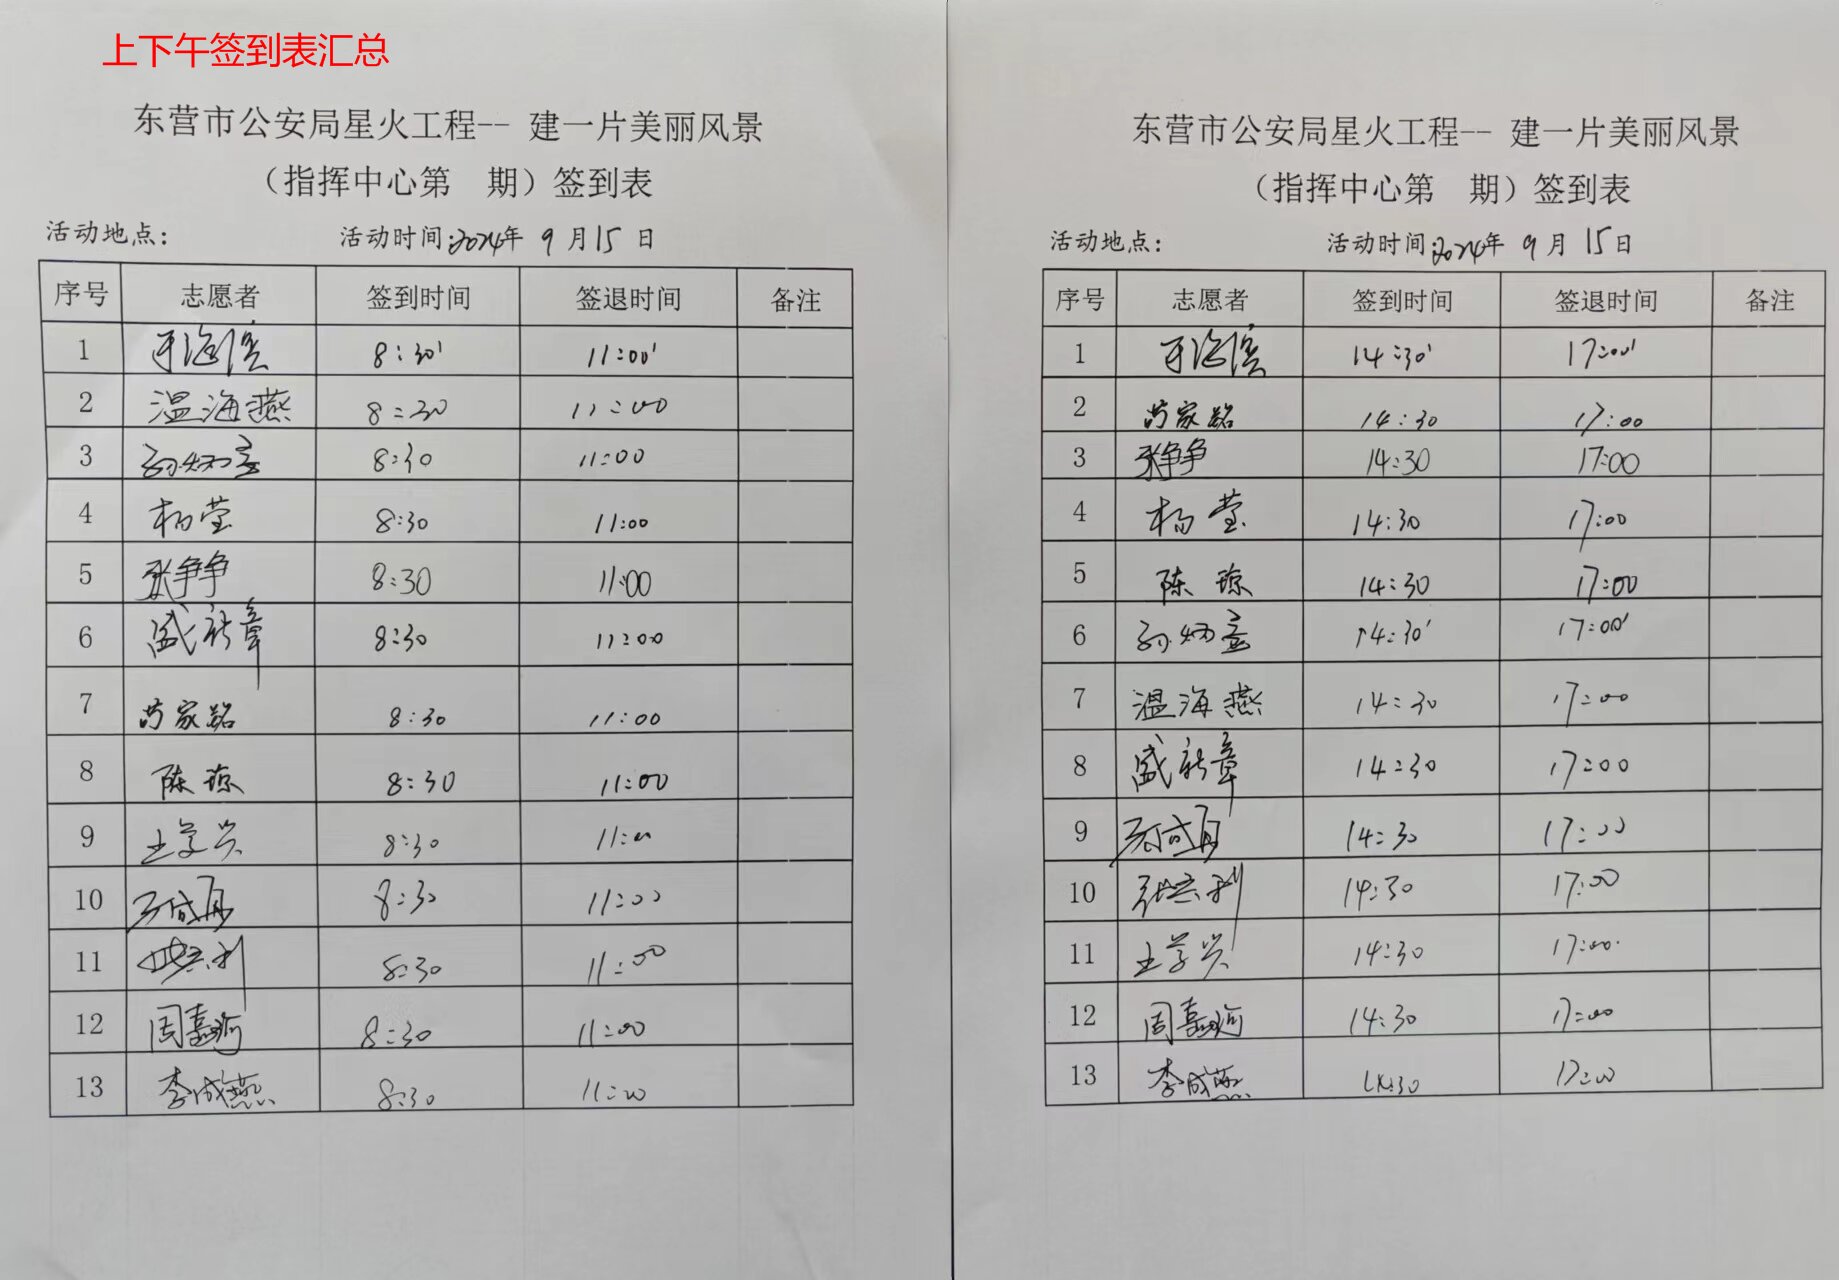 上下午签到表汇总
东营市公安局星火工程-- 建一片美丽风景
（指挥中心第 期）签到表
活动地点： 活动时间：2024年 9 月 15 日
序号 志愿者 签到时间 签退时间 备注
1 于海滨 8:30' 11:00'
2 温海燕 8:30 11:00
3 8:30 11:00
4 杨莹 8:30 11:00
5 张争争 8:30 11:00
6 盛新章 8:30 11:00
7 苏家铭 8:30 11:00
8 陈琼 8:30 11:00
9 王学兴 8:30 11:00
10 8:30 11:00
11 8:30 11:00
12 周嘉珂 8:30 11:00
13 李成燕 8:30 11:00
东营市公安局星火工程-- 建一片美丽风景
（指挥中心第 期）签到表
活动地点： 活动时间：2024年 9 月 15 日
序号 志愿者 签到时间 签退时间 备注
1 于海滨 14:30' 17:00'
2 苏家铭 14:30 17:00
3 张争争 14:30 17:00
4 杨莹 14:30 17:00
5 陈琼 14:30 17:00
6 14:30' 17:00'
7 温海燕 14:30 17:00
8 盛新章 14:30 17:00
9 14:30 17:00
10 14:30 17:00
11 王学兴 14:30 17:00
12 周嘉珂 14:30 17:00
13 李成燕 14:30 17:00